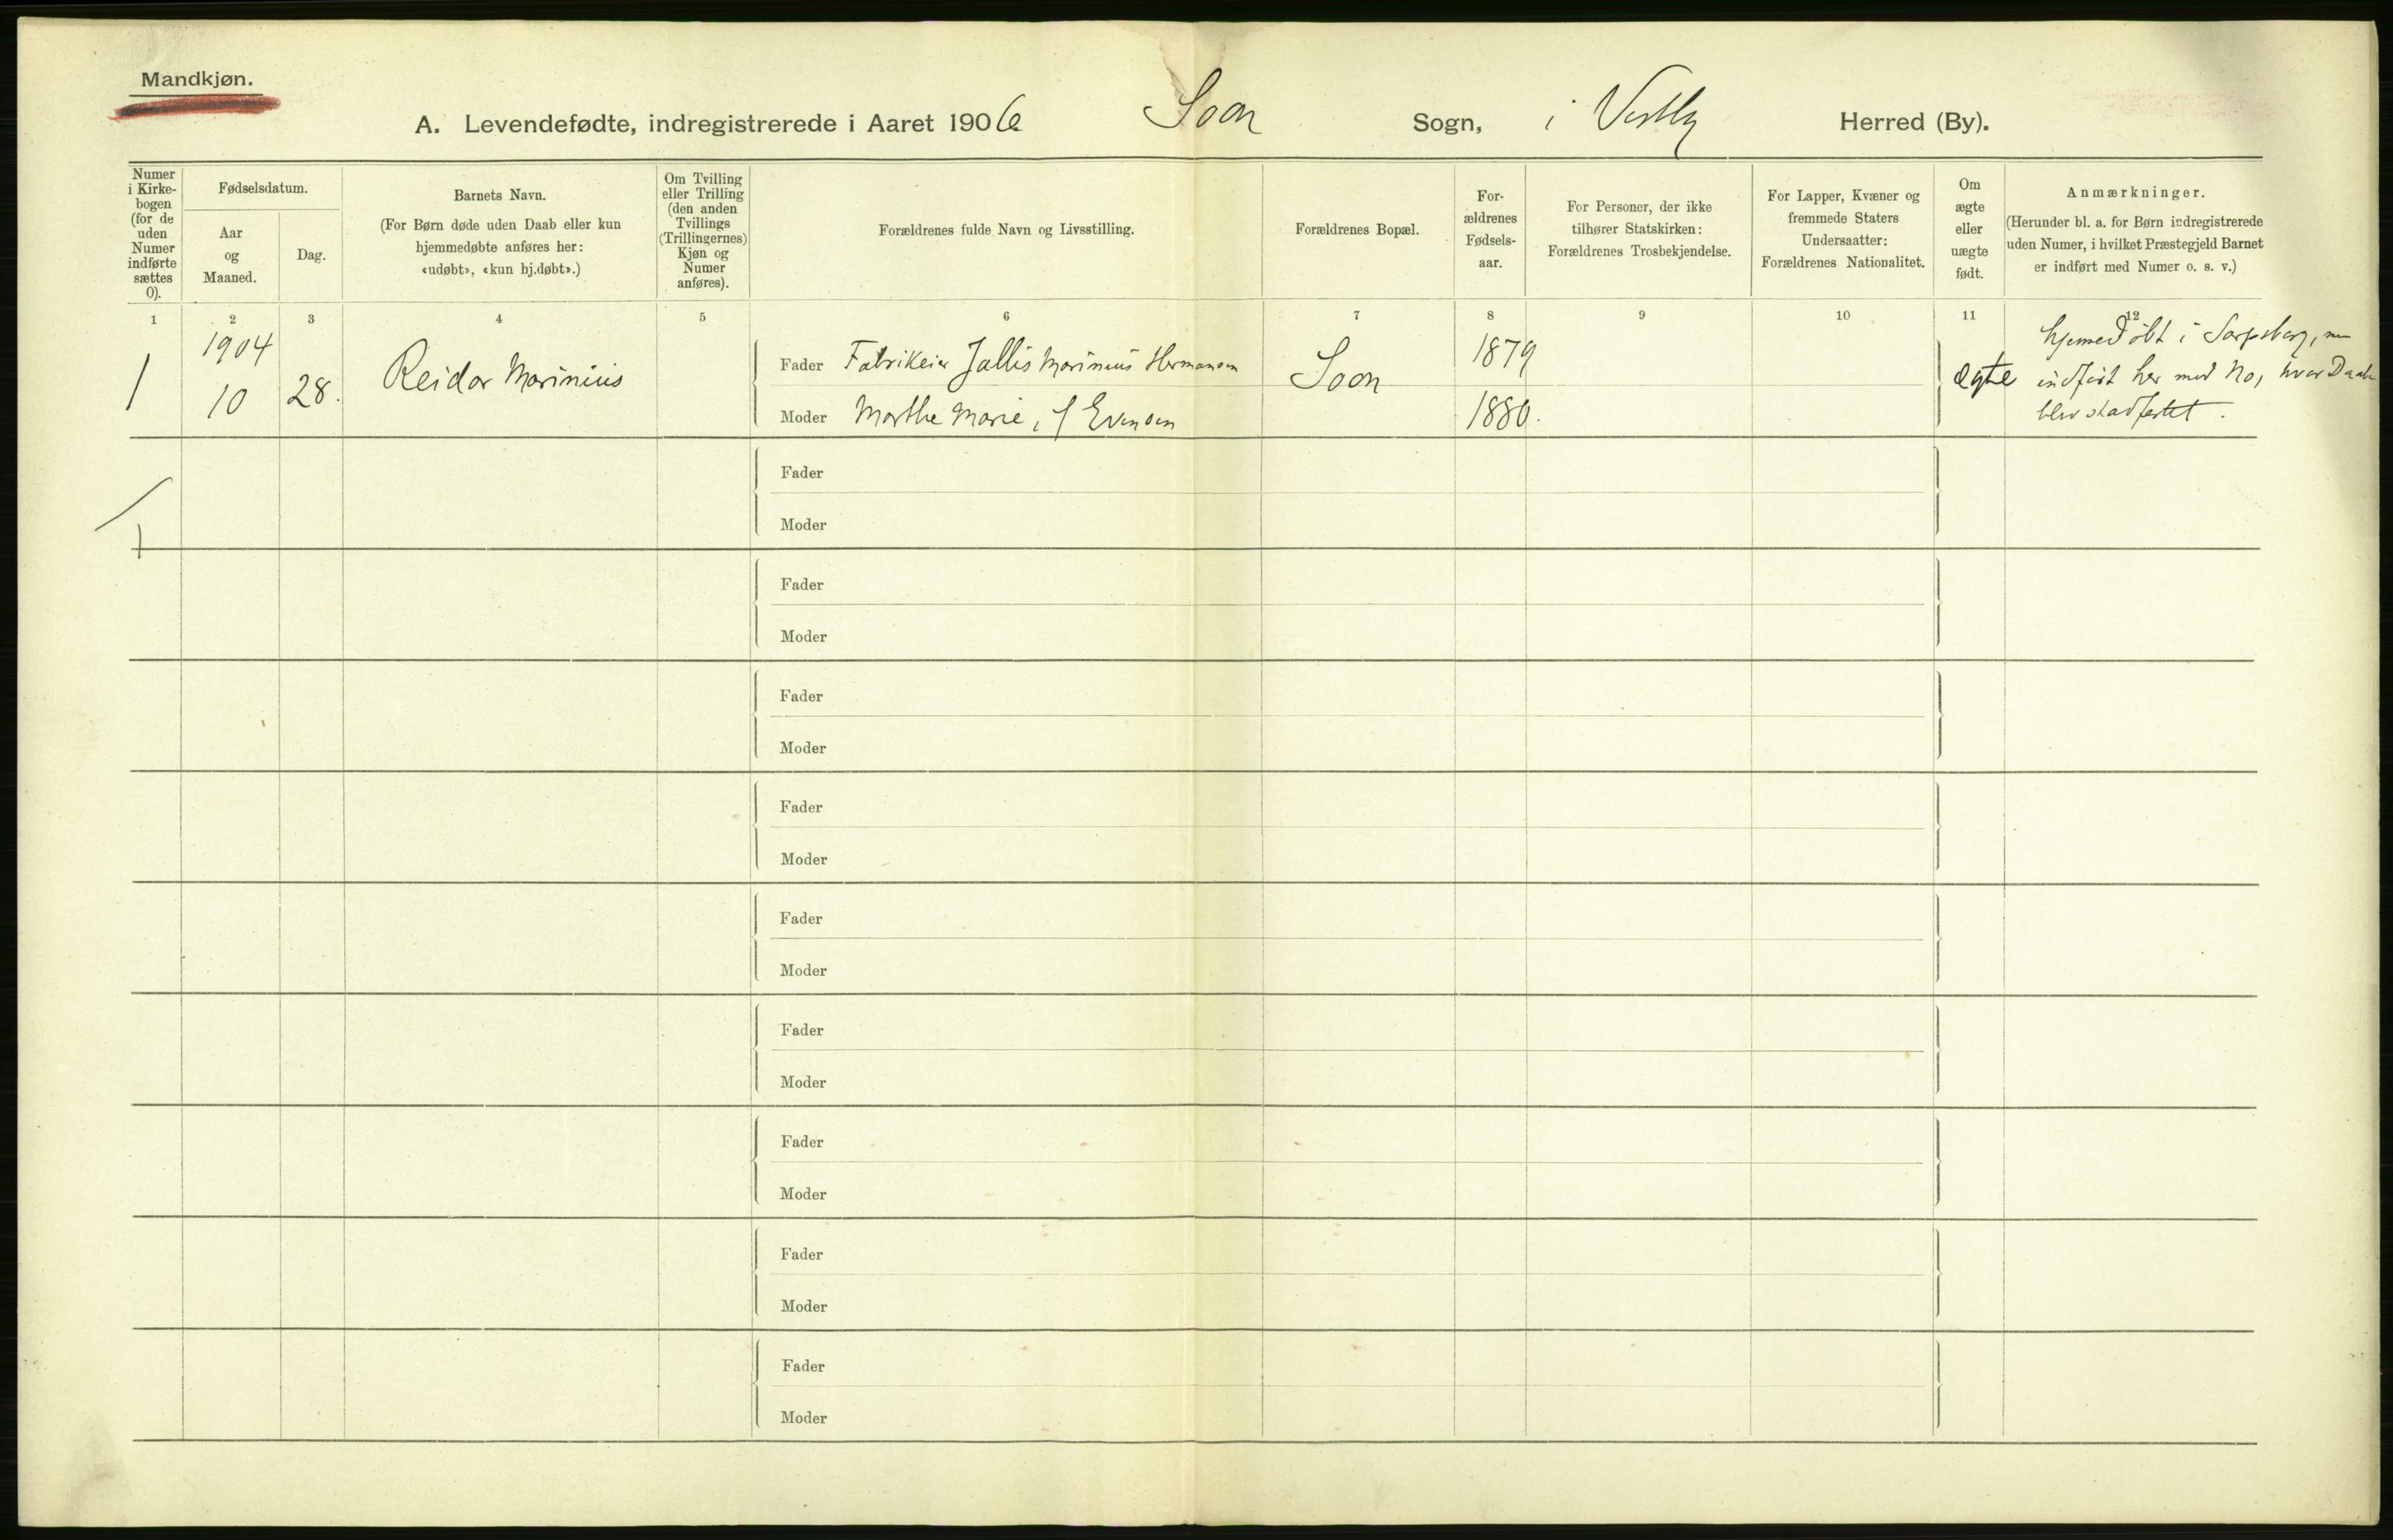 Mandkjøn.
A. Levendefødte, indregistrerede i Aaret 1906 Soon Sogn, i Vestby Herred (By).
Numer
i Kirke-
bogen
(for de
uden
Numer
indførte
sættes
0).
Fødselsdatum.
Aar
og
Maaned.
Dag.
Barnets Navn.
(For Børn døde uden Daab eller kun
hjemmedøbte anføres her:
«udøbt», «kun hj.døbt».)
Om Tvilling
eller Trilling
(den anden
Tvillings
(Trillingernes)
Kjøn og
Numer
anføres).
Forældrenes fulde Navn og Livsstilling.
Forældrenes Bopæl.
For-
ældrenes
Fødsels-
aar.
For Personer, der ikke
tilhører Statskirken:
Forældrenes Trosbekjendelse.
For Lapper, Kvæner og
fremmede Staters
Undersaatter:
Forældrenes Nationalitet.
Om
ægte
eller
uægte
født.
Anmærkninger.
(Herunder bl. a. for Børn indregistrerede
uden Numer, i hvilket Præstegjeld Barnet
er indført med Numer o. s. v.)
1 2 3 4 5 6 7 8 9 10 11 12
1
1904
10
28.
Reidar Marinius
Fader Fabrikeier Jallis Marinius Hermansen
Moder Marthe Marie, f Evensen
Soon
1879
1880.
ægte
hjemedøbt i Sarpsborg,
indført her med No, hvor Daab
blev stadfestet.
Fader
Moder
1
Fader
Moder
Fader
Moder
Fader
Moder
Fader
Moder
Fader
Moder
Fader
Moder
Fader
Moder
Fader
Moder